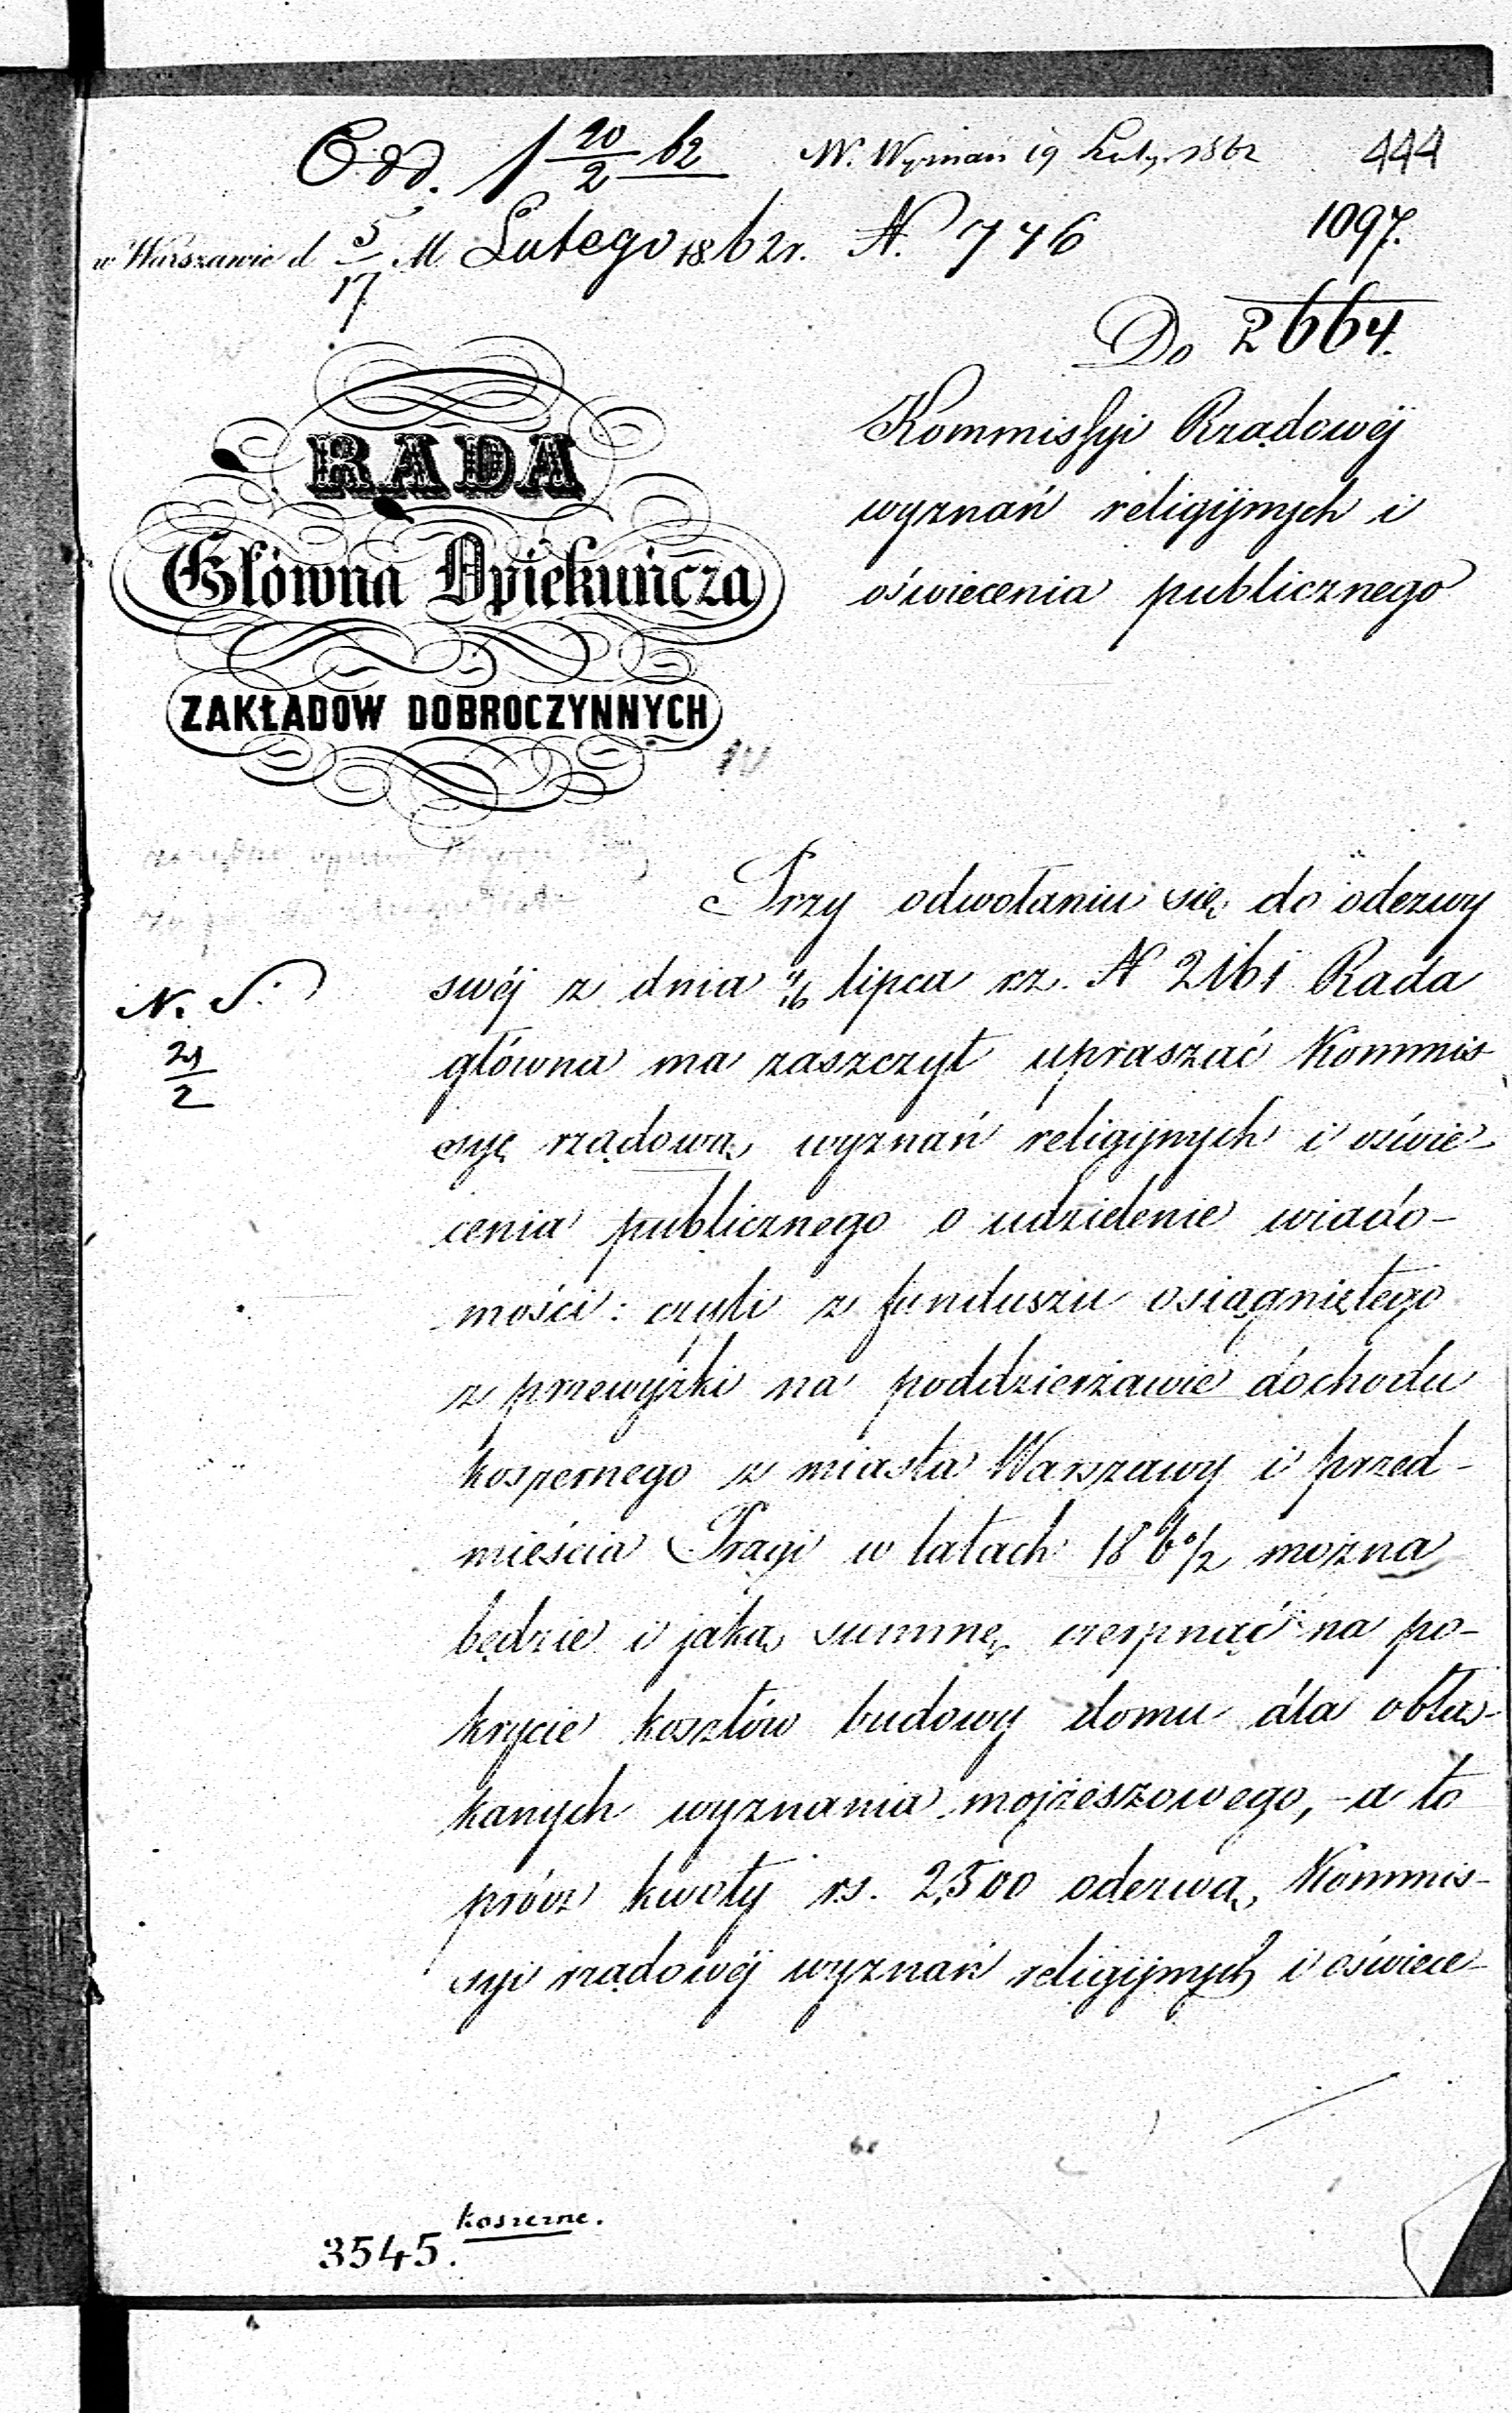 Odd. 1 20/2 62
W. Wyznań 19 Luty 1862
444
w Warszawie d 5/17 M Lutego 1862 r. N. 746
1097.
2664.
Do
Kommissyi Rządowéj
wyznań religijnych i
oświecenia publicznego
RADA
Główna Opiekuńcza
ZAKŁADÓW DOBROCZYNNYCH
Przy odwołaniu się do odezwy
swéj z dnia 4/16 lipca rz. N 2161 Rada
główna ma zaszczyt upraszać Kommis
syę rządową wyznań religijnych i oświe-
cenia publicznego o udzielenie wiado-
mości: czyli z funduszu osiągniętego
z przewyżki na poddzierżawie dochodu
koszernego z miasta Warszawy i przed-
mieścia Pragi w latach 186 0/2 można
będzie i jaką summę czerpnąć na po-
krycie kosztów budowy domu dla obłą-
kanych wyznania mojżeszowego, - a to
prócz kwoty rs. 2,500 odezwą Kommis-
syi rządowéj wyznań religijnych i oświece-
N. S.
21/2
koszerne.
3545.